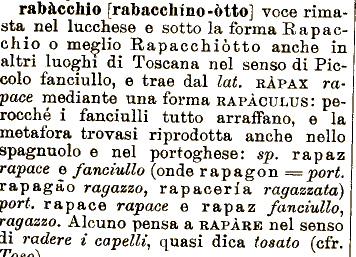 rabàcchio [rabacchíno-òtto] voce rima-
sta nel lucchese e sotto la forma Rapac-
chio o meglio Rapacchiòtto anche in
altri luoghi di Toscana nel senso di Pic-
colo fanciullo, e trae dal lat. RÀPAX ra-
pace mediante una forma RAPÀCULUS: pe-
rocché i fanciulli tutto arraffano, e la
metafora trovasi riprodotta anche nello
spagnuolo e nel portoghese: sp. rapaz
rapace e fanciullo (onde rapagon = port.
rapagão ragazzo, rapacería ragazzata)
port. rapace rapace e rapaz fanciullo,
ragazzo. Alcuno pensa a RAPÀRE nel senso
di radere i capelli, quasi dica tosato (cfr.
Toso)